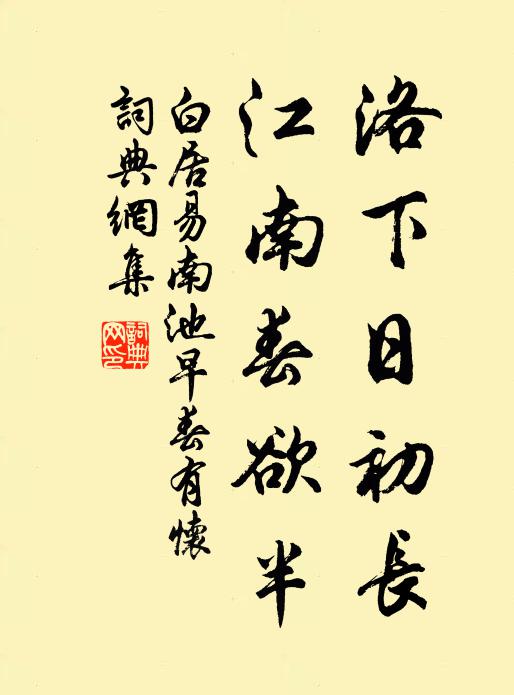 洛下日初長
江南春欲半
白居易南池早春有懷
詞典網集
詞典網印